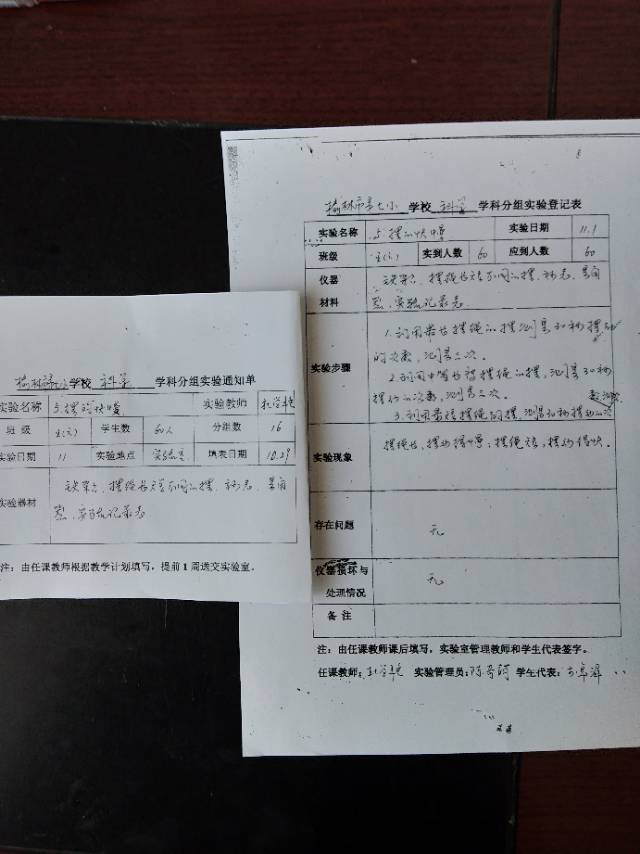 榆林市第七小学校 科学 学科分组实验通知单
实验名称 5.摆的快慢 实验教师
班级 五(2) 学生数 60人 分组数 16
实验日期 11 实验地点 实验室 填表日期 10.29
实验器材 铁架台、摆绳长短不同的摆、秒表、量角
器、实验记录表
注：由任课教师根据教学计划填写，提前1周送交实验室。
榆林市第七小 学校 科学 学科分组实验登记表
实验名称 5.摆的快慢 实验日期 11.1
班级 五(2) 实到人数 60 应到人数 60
仪器 铁架台、摆绳长短不同的摆、秒表、量角
材料 器、实验记录表
实验步骤 1.利用最长摆绳的摆,测量30秒摆动
的次数,测量三次。
2.利用中等长摆绳的摆,测量30秒
摆动的次数,测量三次。
3.利用最短摆绳的摆,测量30秒摆动的次
数,测
实验现象 摆绳长,摆动摆慢;摆绳短,摆动得快。
存在问题 无
仪器损坏与 无
处理情况
备注
注：由任课教师课后填写，实验室管理教师和学生代表签字。
任课教师: 实验管理员: 学生代表: